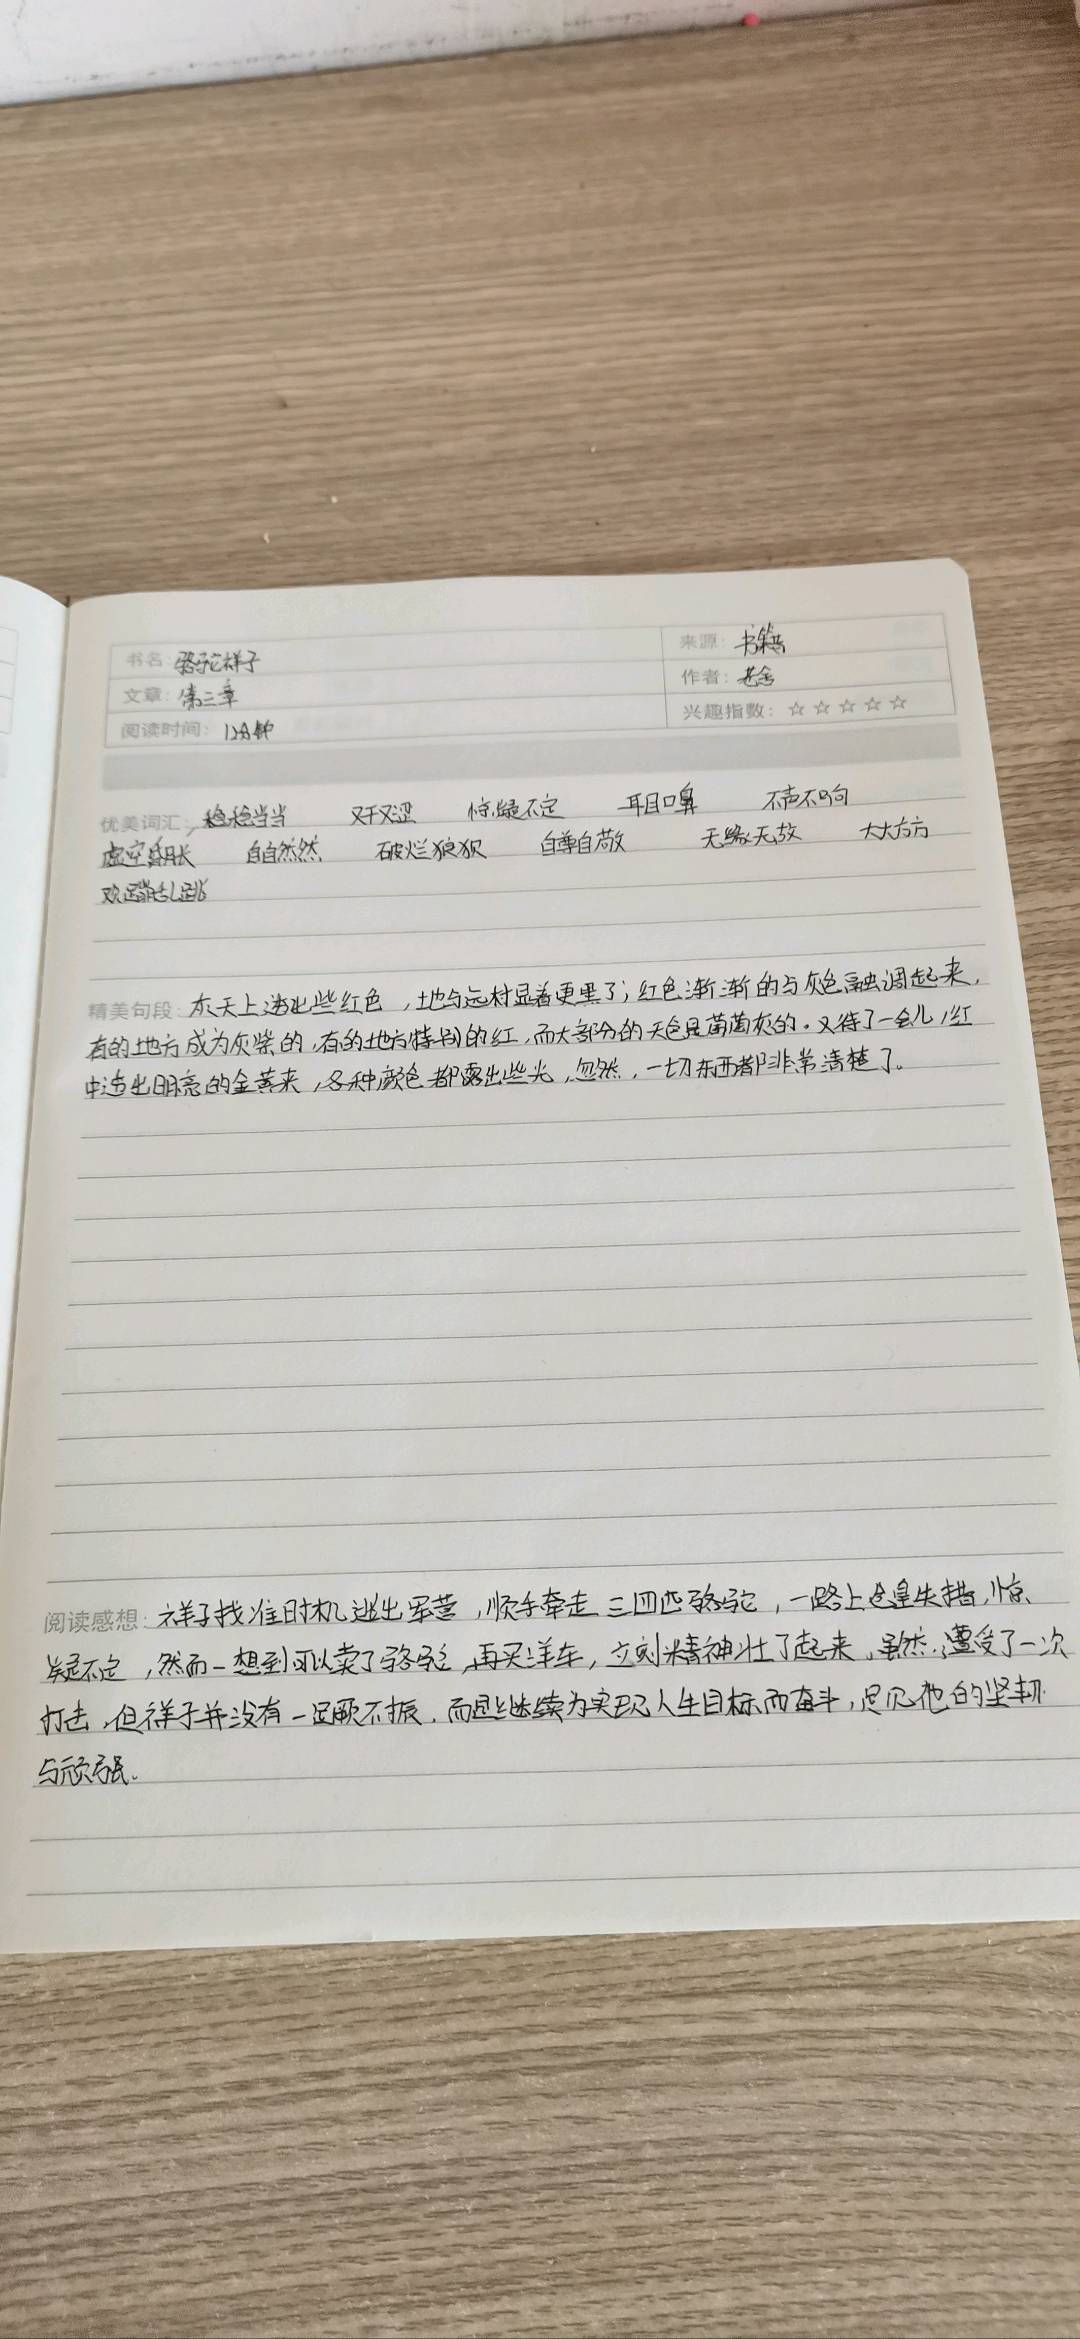 书名：骆驼祥子 来源：书籍
文章：第三章 作者：老舍
阅读时间：12分钟 兴趣指数：☆☆☆☆☆
优美词汇：稳稳当当 又干又涩 惊疑不定 耳目口鼻 不声不响
虚空 自自然然 破烂狼狈 自尊自敬 无缘无故 大大方方
欢蹦乱跳
精美句段：灰天上透出些红色，地与远树显着更黑了；红色渐渐的与灰色融调起来，
有的地方成为灰紫的，有的地方特别的红，而大部分的天色是葡萄灰的。又待了一会儿，红
中透出明亮的金黄来，各种颜色都露出些光，忽然，一切东西都非常清楚了。
阅读感想：祥子找准时机逃出军营，顺手牵走三四匹骆驼，一路上仓皇失措，惊
疑不定，然而一想到可以卖了骆驼，再买洋车，立刻精神壮了起来，虽然，遭受了一次
打击，但祥子并没有一蹶不振，而是继续为实现人生目标而奋斗，足见他的坚韧
与顽强。